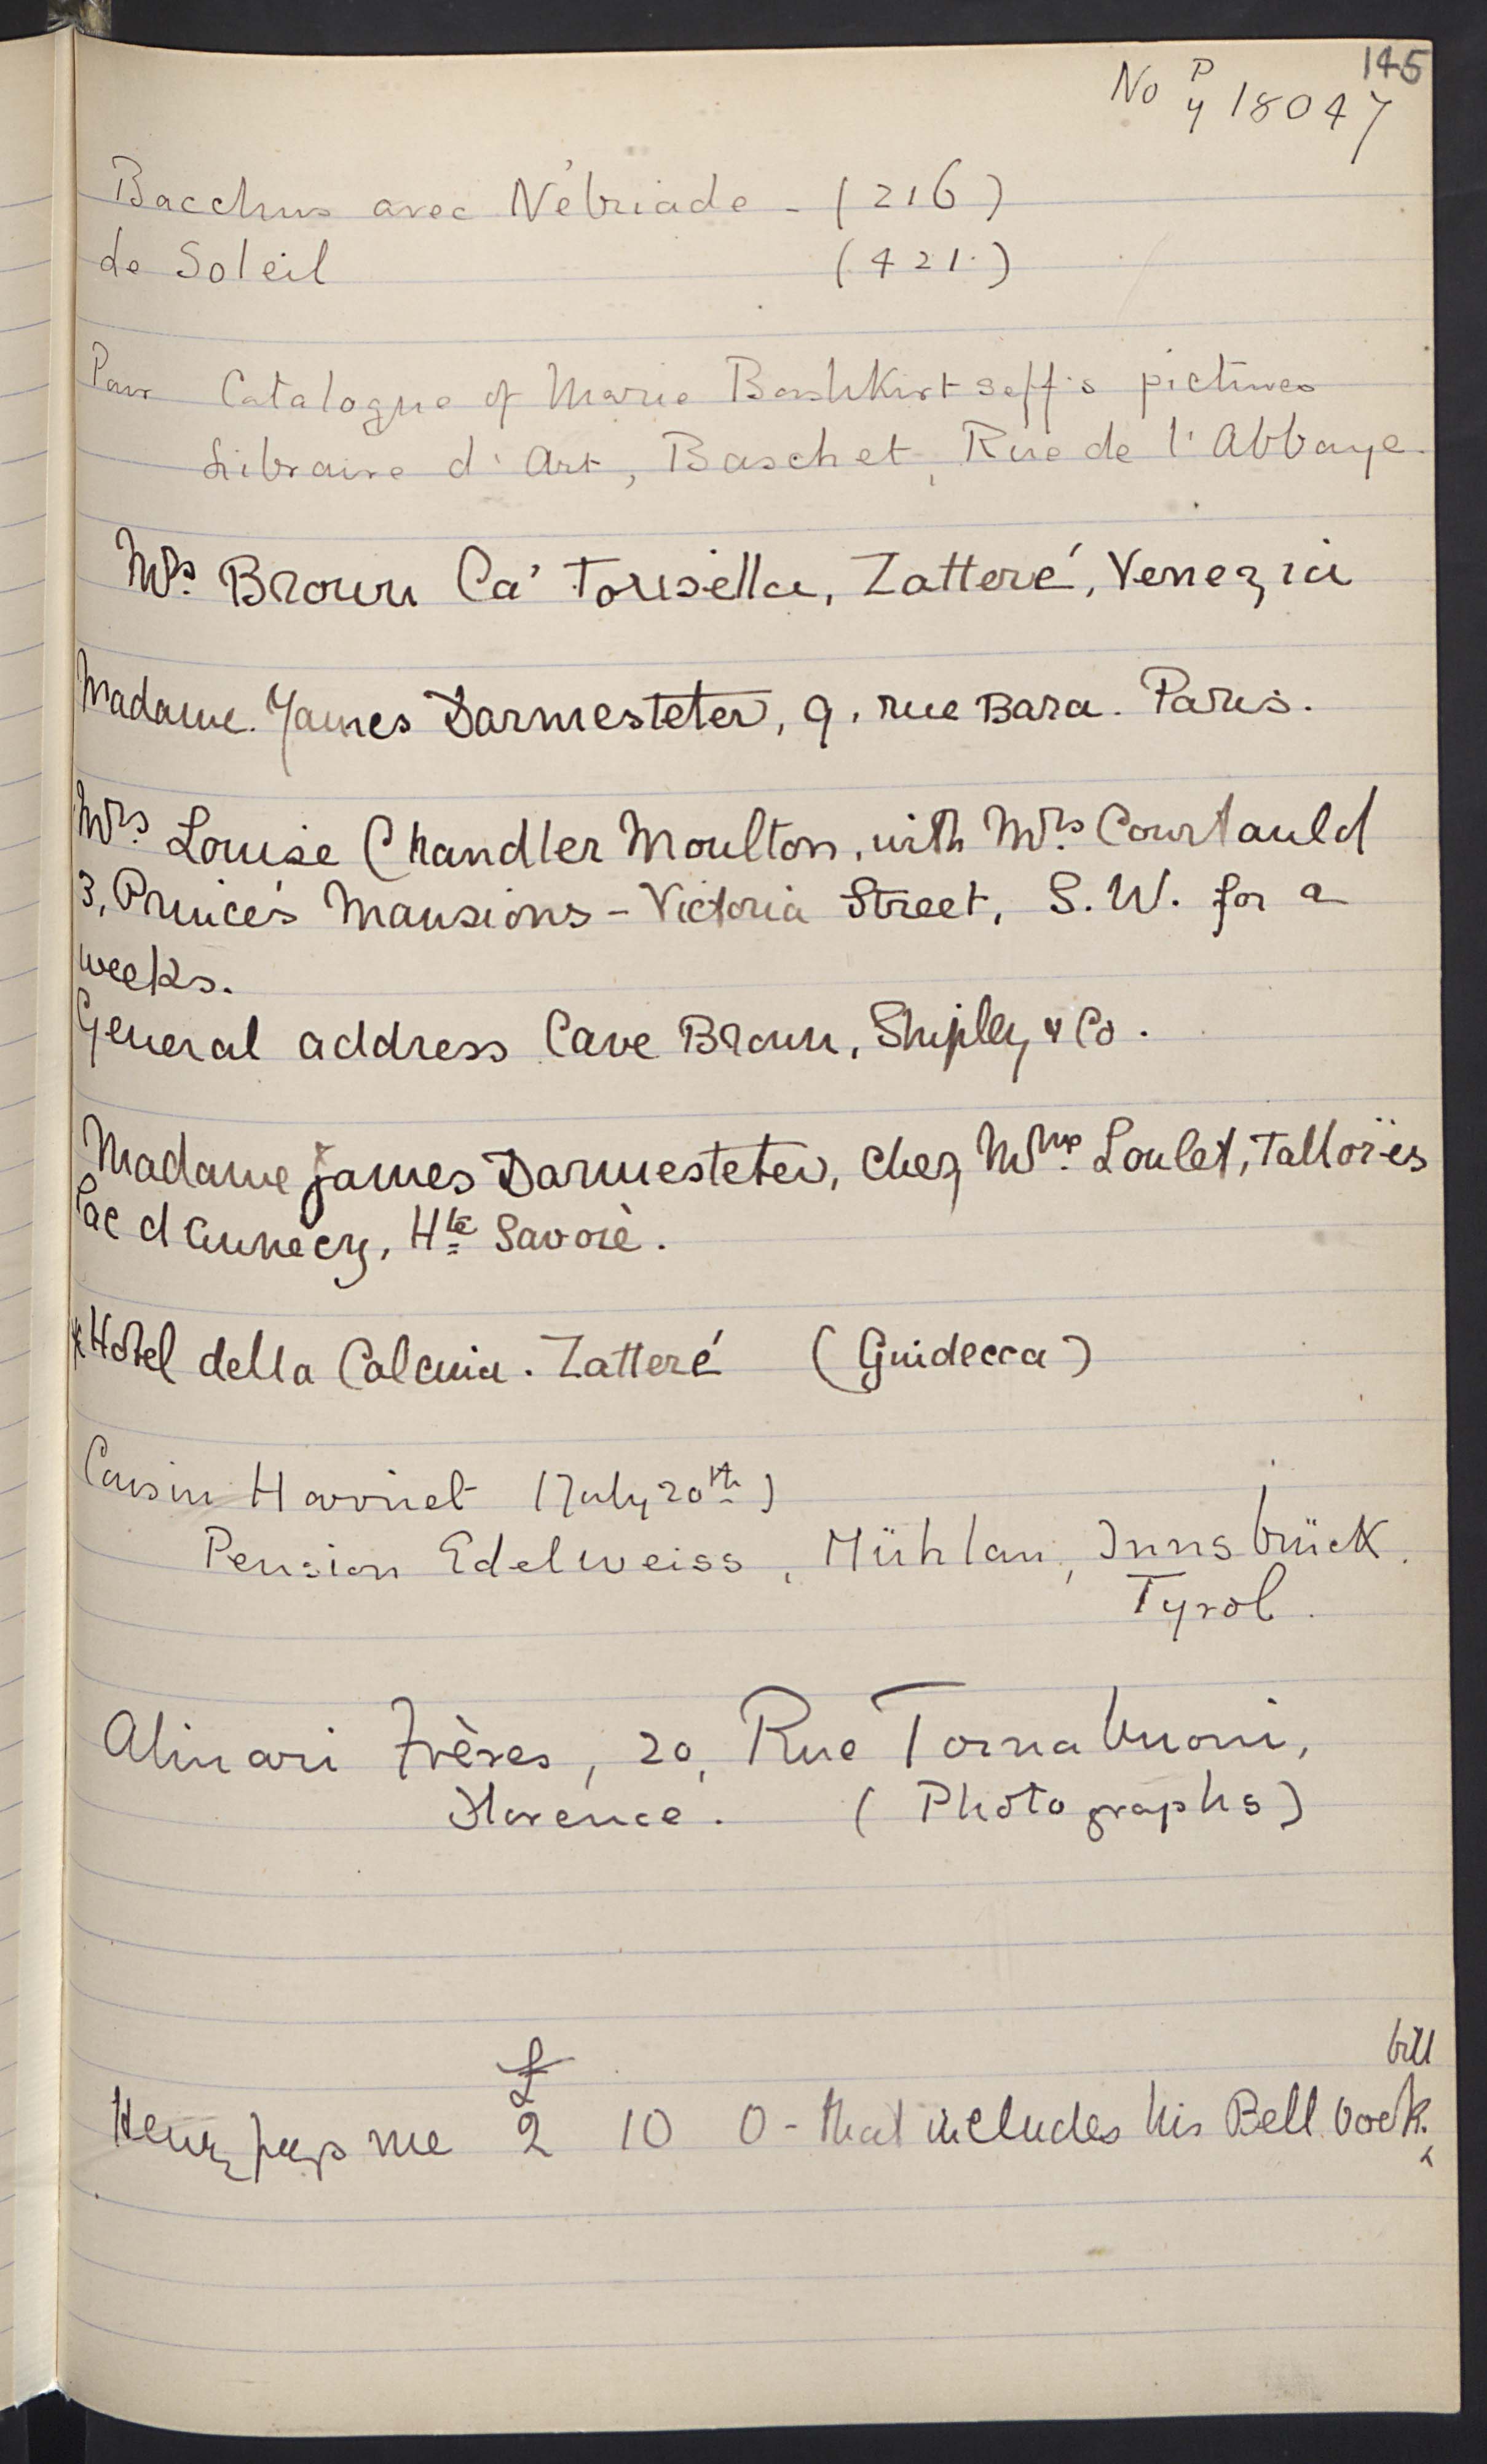 145
No P/4 18047
Bacchus avec Nébriade - (216)
de Soleil (421.)
Catalogue of Marie Bashkirtseff's pictures
Libraire d'Art, Baschet, Rue de l'Abbaye.
Mrs. Brown Ca' Torresella, Zatteré, Venezia
Madame. James Darmesteter, 9. rue Bara. Paris.
Mrs. Louise Chandler Moulton, with Mrs. Courtauld
3, Prince's Mansions - Victoria Street, S.W. for a
weeks.
General address Care Brown, Shipley & Co.
Madame James Darmesteter, chez Mme. Loulet, Talloïres
Lac d'Annecy, Hte Savoie.
Hotel della Calcina. Zatteré (Guidecca)
Cousin Harriet (July 20th)
Pension Edelweiss, Mühlau, Innsbrück.
Tyrol.
Alinari Frères, 20, Rue Tornabuoni,
Florence. (Photographs)
£ bill
Henry pays me 2 10 0 - that includes his Bell book.